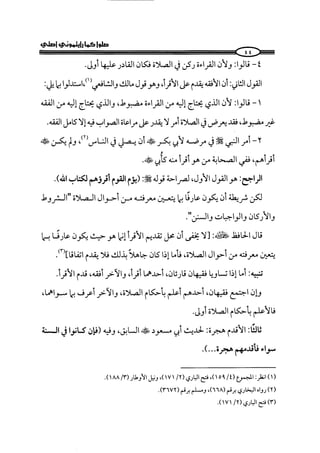 صلوا كما رأيتموني أصلي
٤- قالوا: ولأن القراءة ركن في الصلاة فكان القادر عليها أولى.
القول الثاني: أن الأفقه يقدم على الأقرأ، وهو قول مالك والشافعي(١)، استدلوا بما يلي:
١- قالوا: لأن الذي يحتاج إليه من القراءة مضبوط، والذي يحتاج إليه من الفقه
غير مضبوط، فقد يعرض في الصلاة أمر لا يقدر على مراعاة الصواب فيه إلا كامل الفقه.
٢- أمر النبي ﷺ في مرضه لأبي بكر ﷺ أن يصلي في الناس(٢)، ولم يكن ﷺ
أقرأهم، ففي الصحابة من هو أقرأ منه كأُبي ﷺ.
الراجح: هو القول الأول، لصراحة قوله ﷺ: (يؤم القوم أقرؤهم لكتاب الله).
لكن شريطة أن يكون عارفًا بما يتعين معرفته من أحوال الصلاة "الشروط
والأركان والواجبات والسنن".
قال الحافظ ﷺ: [لا يخفى أن محل تقديم الأقرأ إنما هو حيث يكون عارفًا بما
يتعين معرفته من أحوال الصلاة، فأما إذا كان جاهلاً بذلك فلا يقدم اتفاقا](٣).
تنبيه: أما إذا تساويا فقيهان قارئان، أحدهما أقرأ، والآخر أفقه، قدم الأقرأ.
وإن اجتمع فقيهان، أحدهم أعلم بأحكام الصلاة، والآخر أعرف بما سواهما،
فالأعلم بأحكام الصلاة أولى.
ثالثًا: الأقدم هجرة: لحديث أبي مسعود ﷺ السابق، وفيه (فإن كانوا في السنة
سواء فأقدمهم هجرة...).
(١) انظر: المجموع (٤/ ١٥٩)، فتح الباري (٢/ ١٧١)، ونيل الأوطار (٣/ ١٨٨).
(٢) رواه البخاري برقم (٦٦٨)، ومسلم برقم (٣٦٧٢).
(٣) فتح الباري (٢/ ١٧١).